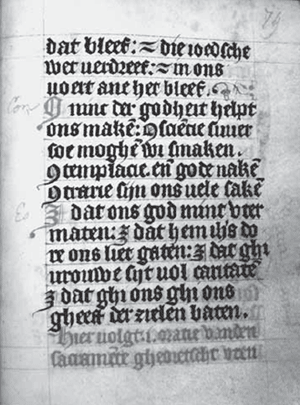 74
dat bleef: ≈ die ioedsche
wet verdreef: ≈ in ons
voert ant het bleef.
Con
O mint der godheit helpt
ons makē: ꝯsciētie suuer
soe moghē wi smaken.
ꝯtemplacie. en̄ gode nakē
ꝯtrarie sijn ons vele sakē
Eo
dat ons god mint vter
maten: ⁊ dat hem ihs do
re ons liet gaten: ⁊ dat ghi
vrouwe sijt vol caritatē
⁊ dat ghi ons ghi ons
gheeft der zielen baten.
Hier volgt .i. oratie vanden
sacramēte ghedietscht vten